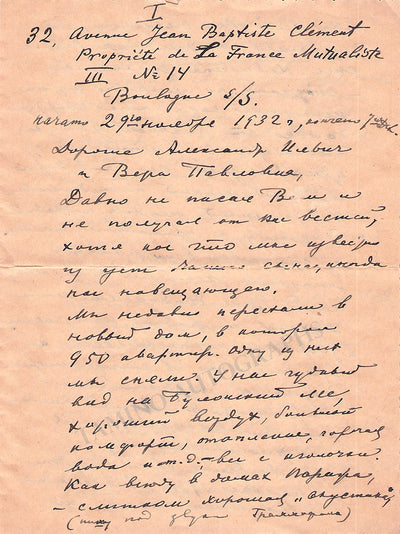 I
32, Avenue Jean Baptiste Clément
Propriété de La France Mutualiste
III № 14
Boulogne s/S.
начато 29го ноября 1932 г,
Дорогие Александр Ильич
и Вера Павловна,
Давно не писал Вам и
не получал от Вас вестей,
хотя кое что мне известно
из уст Вашего сына, иногда
нас навещающего.
Мы недавно переехали в
новый дом, в котором
950 квартир. Одну из них
мы сняли. У нас чудный
вид на Булонский лес,
хороший воздух, большой
комфорт, отопление, горячая
вода и т.д, – все с иголочки.
Как всюду в домах Парижа,
– слишком хорошая "акустика"
(пишу под звуки Граммофона)